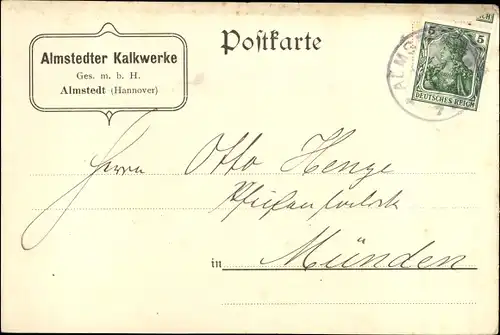 Almstedter Kalkwerke
Ges. m. b. H.
Almstedt (Hannover)
Postkarte
5 5
DEUTSCHES REICH
Herrn Otto Henze
in Münden